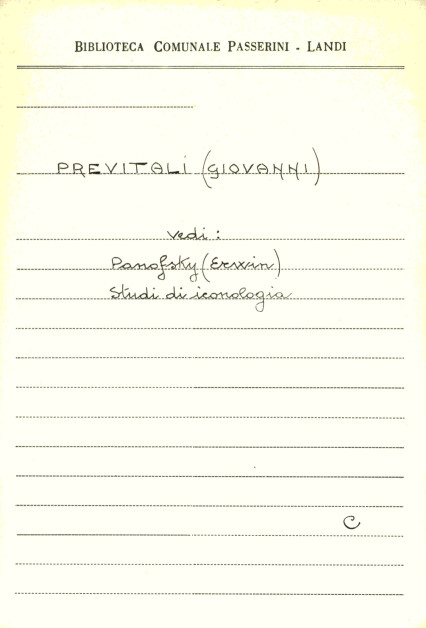 BIBLIOTECA COMUNALE PASSERINI - LANDI
PREVITALI (GIOVANNI)
Vedi :
Panofsky (Erwin)
Studi di iconologia
C